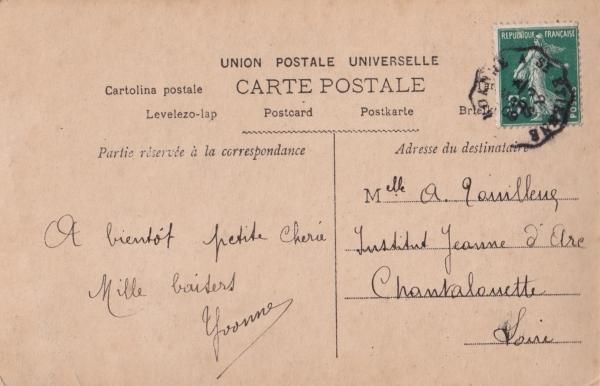 UNION POSTALE UNIVERSELLE
CARTE POSTALE
Cartolina postale
Levelezo-lap Postcard Postkarte
Partie réservée à la correspondance
Adresse du destinataire
REPUBLIQUE FRANÇAISE
Melle A.
Institut Jeanne d'Arc
Chantalouette
Loire
A bientôt petite cherie
Mille baisers
Yvonne